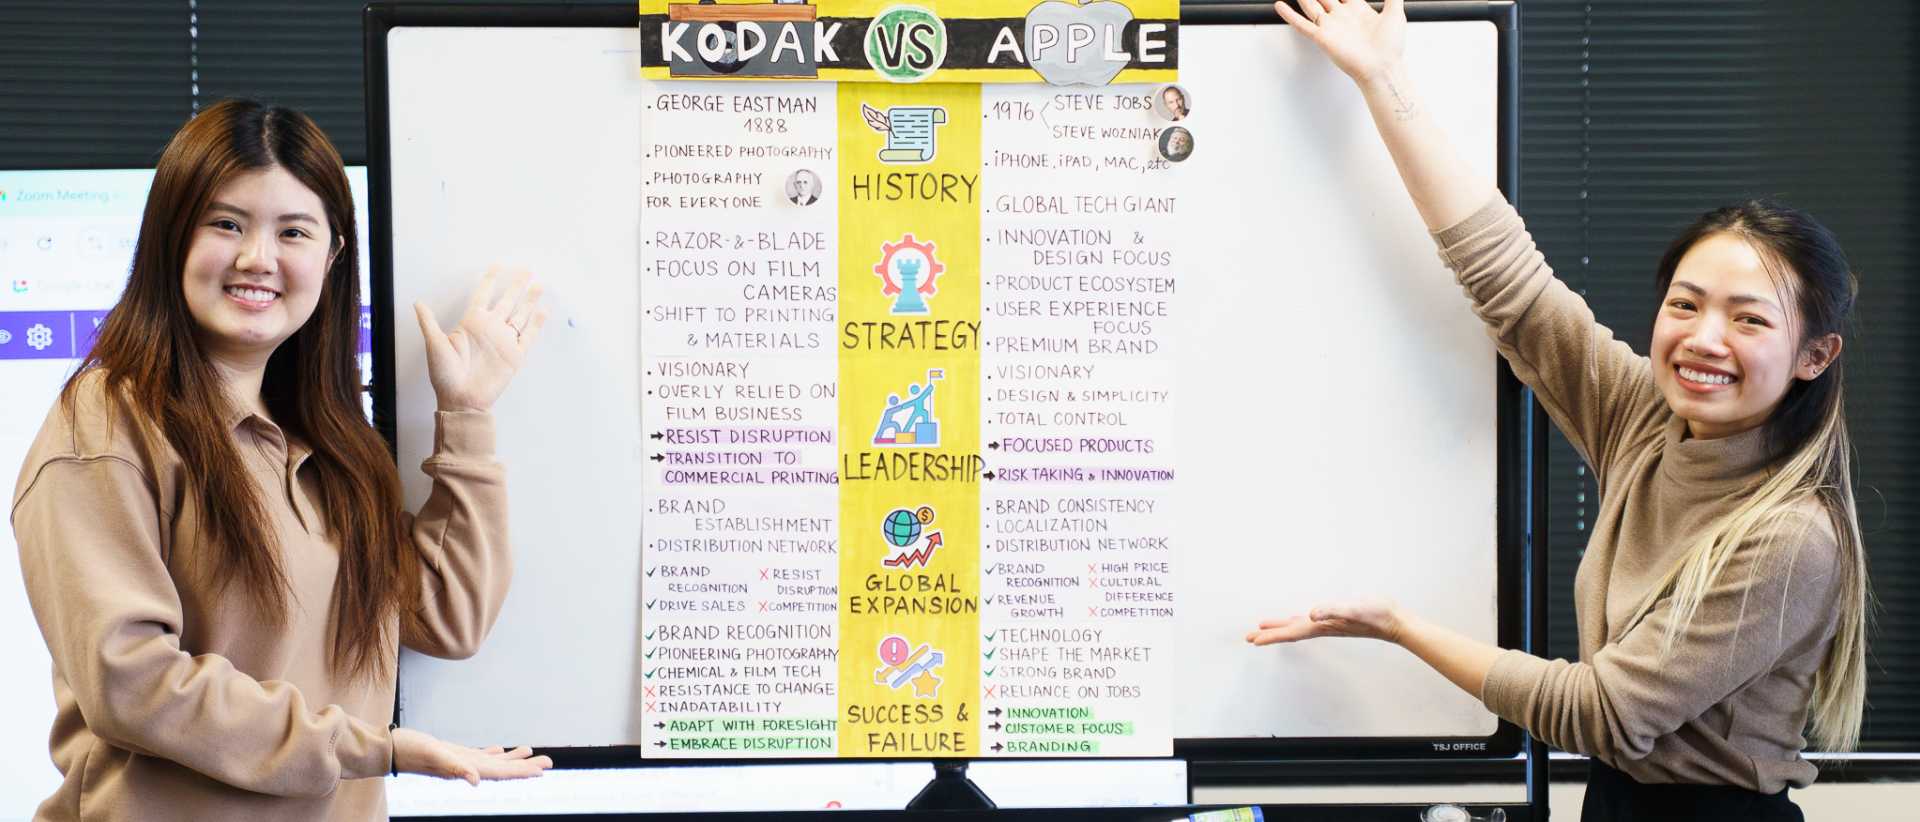 KODAK VS APPLE
. GEORGE EASTMAN
1888
. PIONEERED PHOTOGRAPHY
. PHOTOGRAPHY
FOR EVERYONE
HISTORY
. 1976 < STEVE JOBS
STEVE WOZNIAK
. iPHONE, iPAD, MAC, etc
. GLOBAL TECH GIANT
· RAZOR-&-BLADE
· FOCUS ON FILM
CAMERAS
· SHIFT TO PRINTING
& MATERIALS
STRATEGY
· INNOVATION &
DESIGN FOCUS
· PRODUCT ECOSYSTEM
· USER EXPERIENCE
FOCUS
· PREMIUM BRAND
· VISIONARY
· OVERLY RELIED ON
FILM BUSINESS
→ RESIST DISRUPTION
→ TRANSITION TO
COMMERCIAL PRINTING
LEADERSHIP
. VISIONARY
. DESIGN & SIMPLICITY
. TOTAL CONTROL
→ FOCUSED PRODUCTS
→ RISK TAKING & INNOVATION
. BRAND
ESTABLISHMENT
· DISTRIBUTION NETWORK
✓ BRAND
RECOGNITION
✓ DRIVE SALES
X RESIST
DISRUPTION
X COMPETITION
GLOBAL
EXPANSION
· BRAND CONSISTENCY
· LOCALIZATION
· DISTRIBUTION NETWORK
✓ BRAND
RECOGNITION
✓ REVENUE
GROWTH
X HIGH PRICE
X CULTURAL
DIFFERENCE
X COMPETITION
✓ BRAND RECOGNITION
✓ PIONEERING PHOTOGRAPHY
✓ CHEMICAL & FILM TECH
X RESISTANCE TO CHANGE
X INADATABILITY
→ ADAPT WITH FORESIGHT
→ EMBRACE DISRUPTION
SUCCESS &
FAILURE
✓ TECHNOLOGY
✓ SHAPE THE MARKET
✓ STRONG BRAND
X RELIANCE ON JOBS
→ INNOVATION
→ CUSTOMER FOCUS
→ BRANDING
TSJ OFFICE
Zoom Meeting
Google Chat